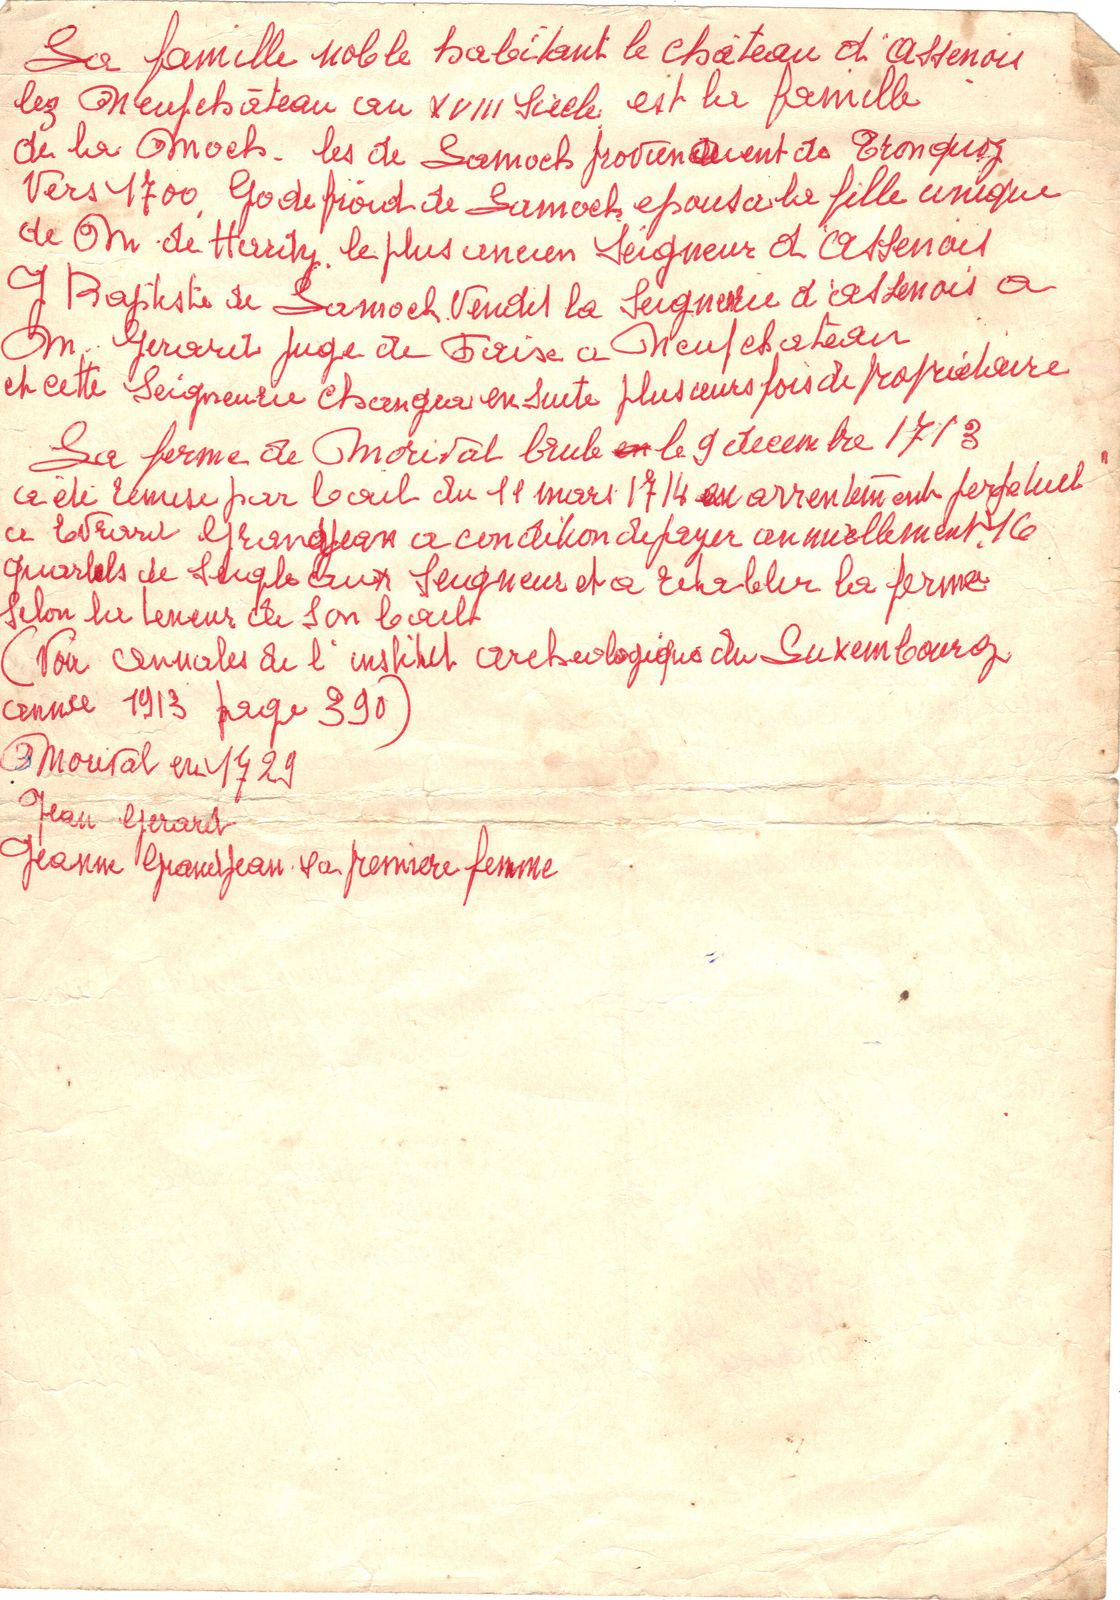 La famille noble habitant le château d'Assenois
lez Neufchâteau au XVIII Siècle est la famille
de la Moch. les de Lamock proviennent de Tronquoy
Vers 1700, Godefroid de Lamock epousa la fille unique
de M. de Hardy, le plus ancien Seigneur d'Assenois
J Baptiste de Lamock Vendit la Seigneurie d'assenois a
M. Gerard Juge de a Neufchateau
et cette Seigneurie changea ensuite plusieurs fois de propriétaire
La ferme de Morival brulé le 9 decembre 1713
a été remise par bail du 11 mars 1714 en arrentement perpetuel
a Evrard Grandjean a condition de payer annuellement 16
quartels de Seigle aux Seigneur et a rétablir la ferme
Selon la teneur de Son bail
(Voir annales de l'institut archeologique du Luxembourg
année 1913 page 390)
Morival en 1729
Jean Gerard
Jeanne Grandjean sa premiere femme